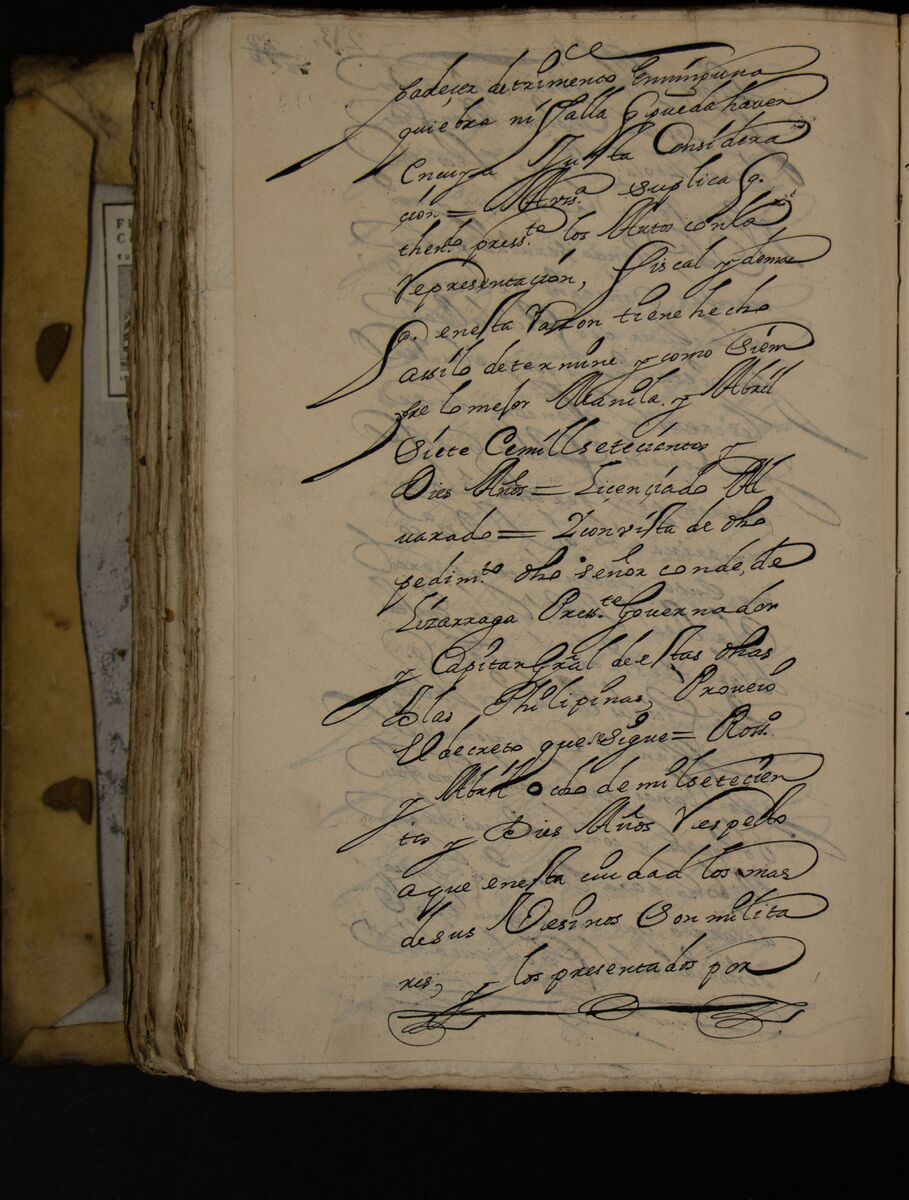 padeçer detrimento Enninguna
quiebra ni falla q̃ pueda haver
Encuya Justa Considera
çion = A Vssª. suplica q.
thenᵈᵒ pressᵗᵉ los Autos con la
Representaçion, fiscal y demas
q. enesta Razon tiene hecho
assilo determine y como siem
pre lo mejor Manila. y Abril
Siete Cemill setecientos y
Dies Años = Liçençiado Al
uarado = Y con vista de dho
pedimᵗᵒ dho señor conde, de
Lizarraga Pressᵗᵉ Gouernador
y Capitan Gral de estas dhas
Yslas Philipinas, Proueio
El decreto que se sigue =
y Abril ocho de mil setecien
tos y Dies Años Respecto
a que enesta ciudad los mas
de sus Vesinos son milita
res, y los presentados por